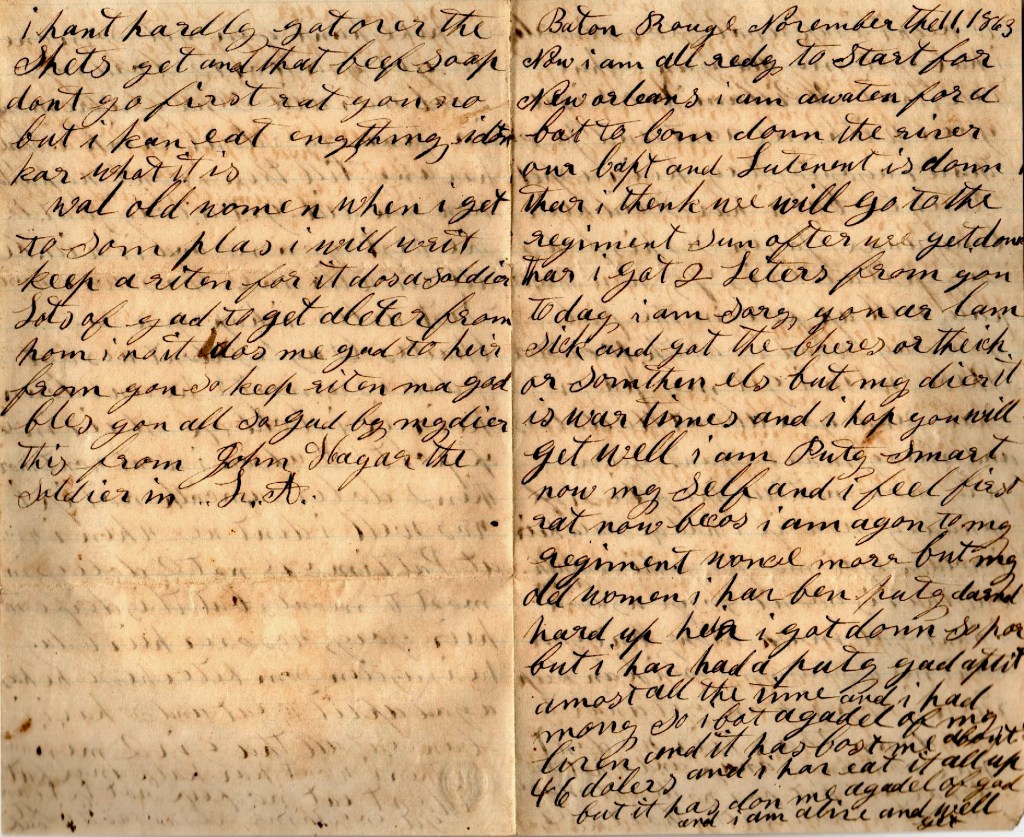 Baton Rouge November the 11. 1863
Now i am all redy to Start for
New orleans i am awaten for a
bot to bom donn the river
our Capt and Lutenent is donn
thar i thenk we will go to the
regiment Sun after we get donn
thar i got 2 Leters from you
to day i am Sory you ar lam
Sick and got the bheres or the ich
or Somthen els but my dier it
is war times and i hop you will
get well i am Puty Smart
now my Self and i feel first
rat now becos i am agon to my
regiment wonce more but my
old women i har ben puty darnd
hard up her i got donn so por
but i har had a puty gad aptit
amost all the time and i had
mony so i bot agadel of my
liven and it has cost me about
46 dolers and i har eat it all up
but it has don me agadel of gad
and i am alive and well
yet
i hant hardly got over the
Shets yet and that beef soap
dont go first rat you no
but i kan eat enything i don
kar what it is
wal old women when i get
to som plas i will writ
keep a riten for it dos a soldier
Lots of gad to get a leter from
hom i no it dos me gad to heir
from you so keep riten ma god
bles you all so gud by my dier
this from John Hagar the
Soldier in .. L. A.